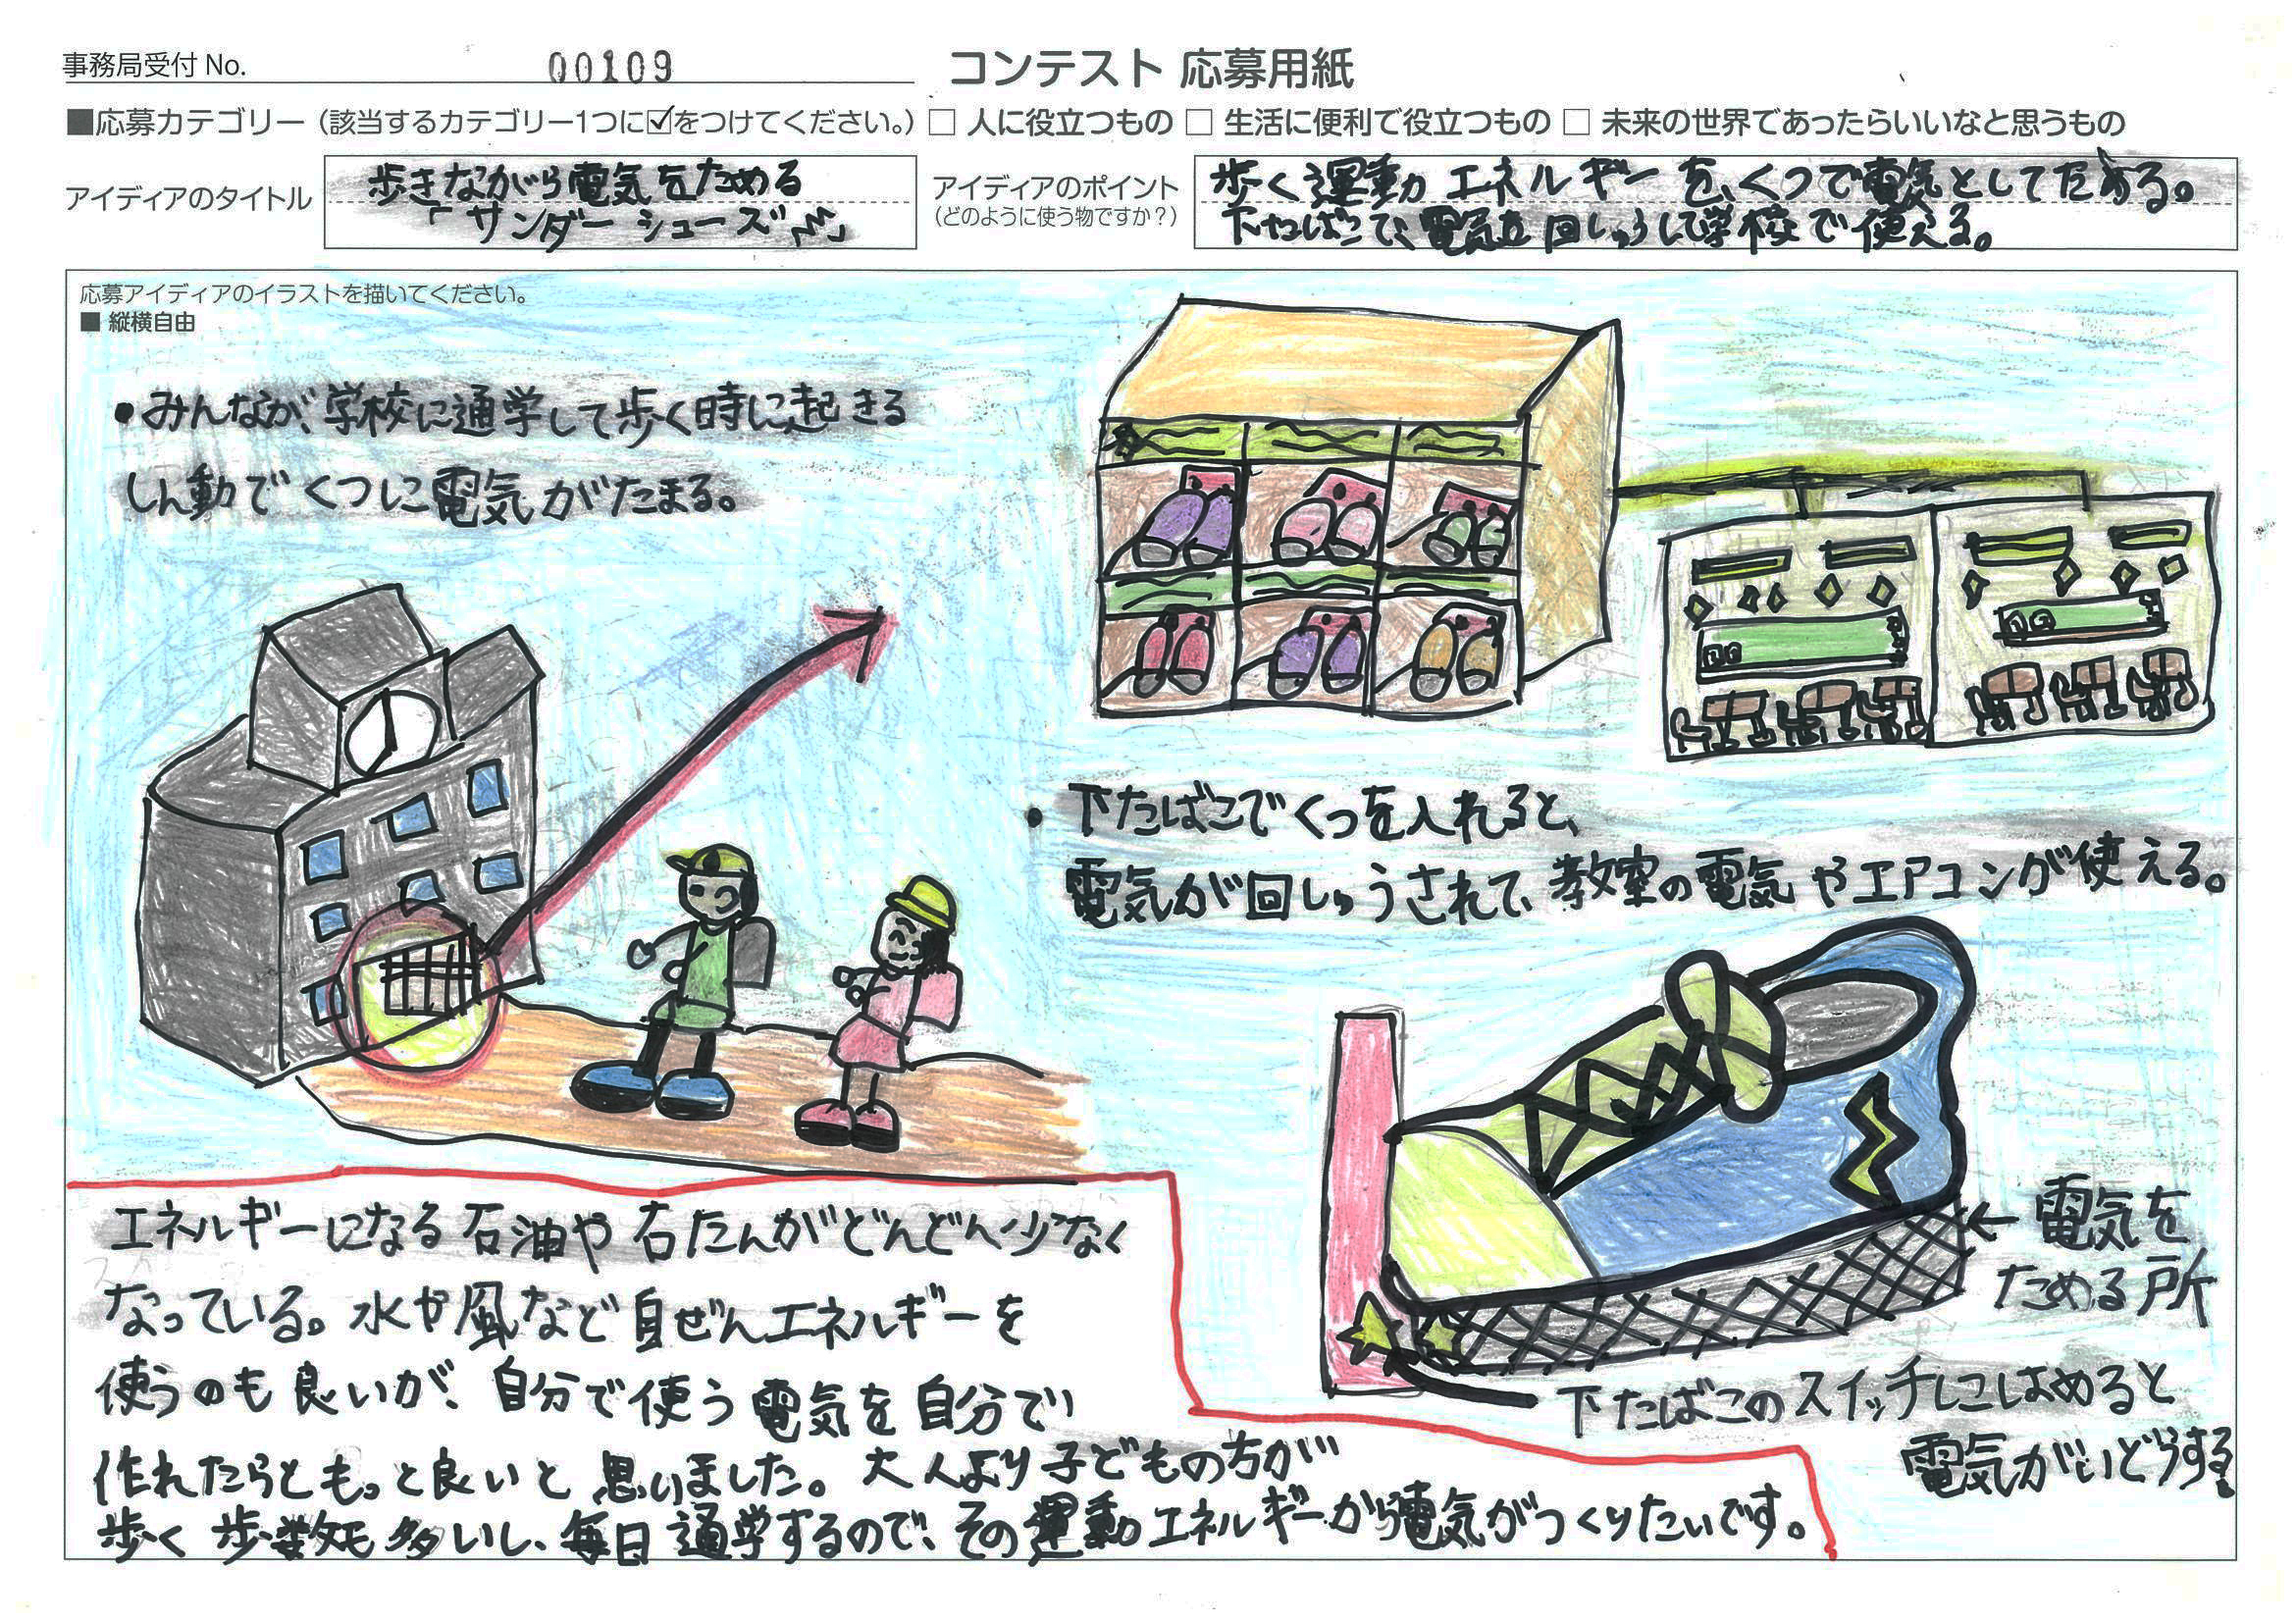 事務局受付 No. 00109
コンテスト 応募用紙
■応募カテゴリー（該当するカテゴリー1つに☑をつけてください。）□ 人に役立つもの □ 生活に便利で役立つもの □ 未来の世界であったらいいなと思うもの
アイディアのタイトル
歩きながら電気をためる
「サンダーシューズ」
アイディアのポイント
（どのように使う物ですか？）
歩く運動エネルギーを、くつで電気としてためる。
下たばこで、電気を回しゅうして学校で使える。
応募アイディアのイラストを描いてください。
■ 縦横自由
・みんなが、学校に通学して歩く時に起きる
しん動でくつに電気がたまる。
・下たばこでくつを入れると、
電気が回しゅうされて、教室の電気やエアコンが使える。
←電気を
ためる所
下たばこのスイッチにしはめると
電気がいどうする。
エネルギーになる石油や石たんがどんどん少なく
なっている。水や風など自ぜんエネルギーを
使うのも良いが、自分で使う電気を自分で
作れたらともっと良いと思いました。大人より子どもの方が
歩く歩数も多いし、毎日通学するので、その運動エネルギーから電気がつくりたいです。